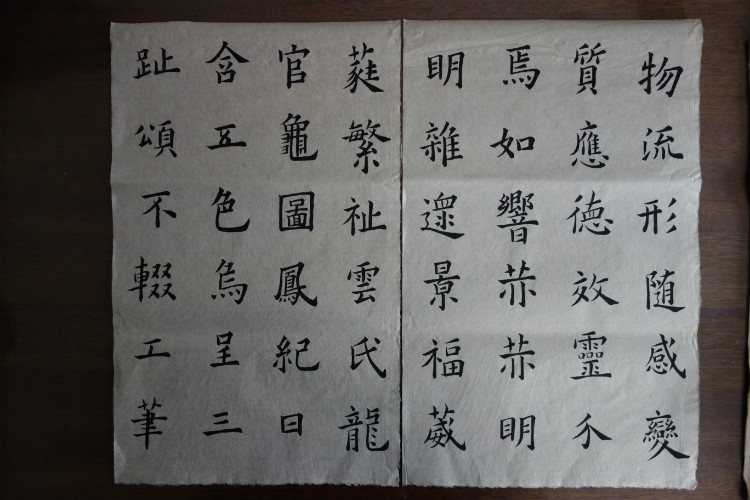 物流形随感變
質應徳效靈介
焉如響赫赫眀
眀雜遝景福葳
蕤繁祉雲氏龍
官龜圖鳳紀日
含五色烏呈三
趾頌不輟工筆